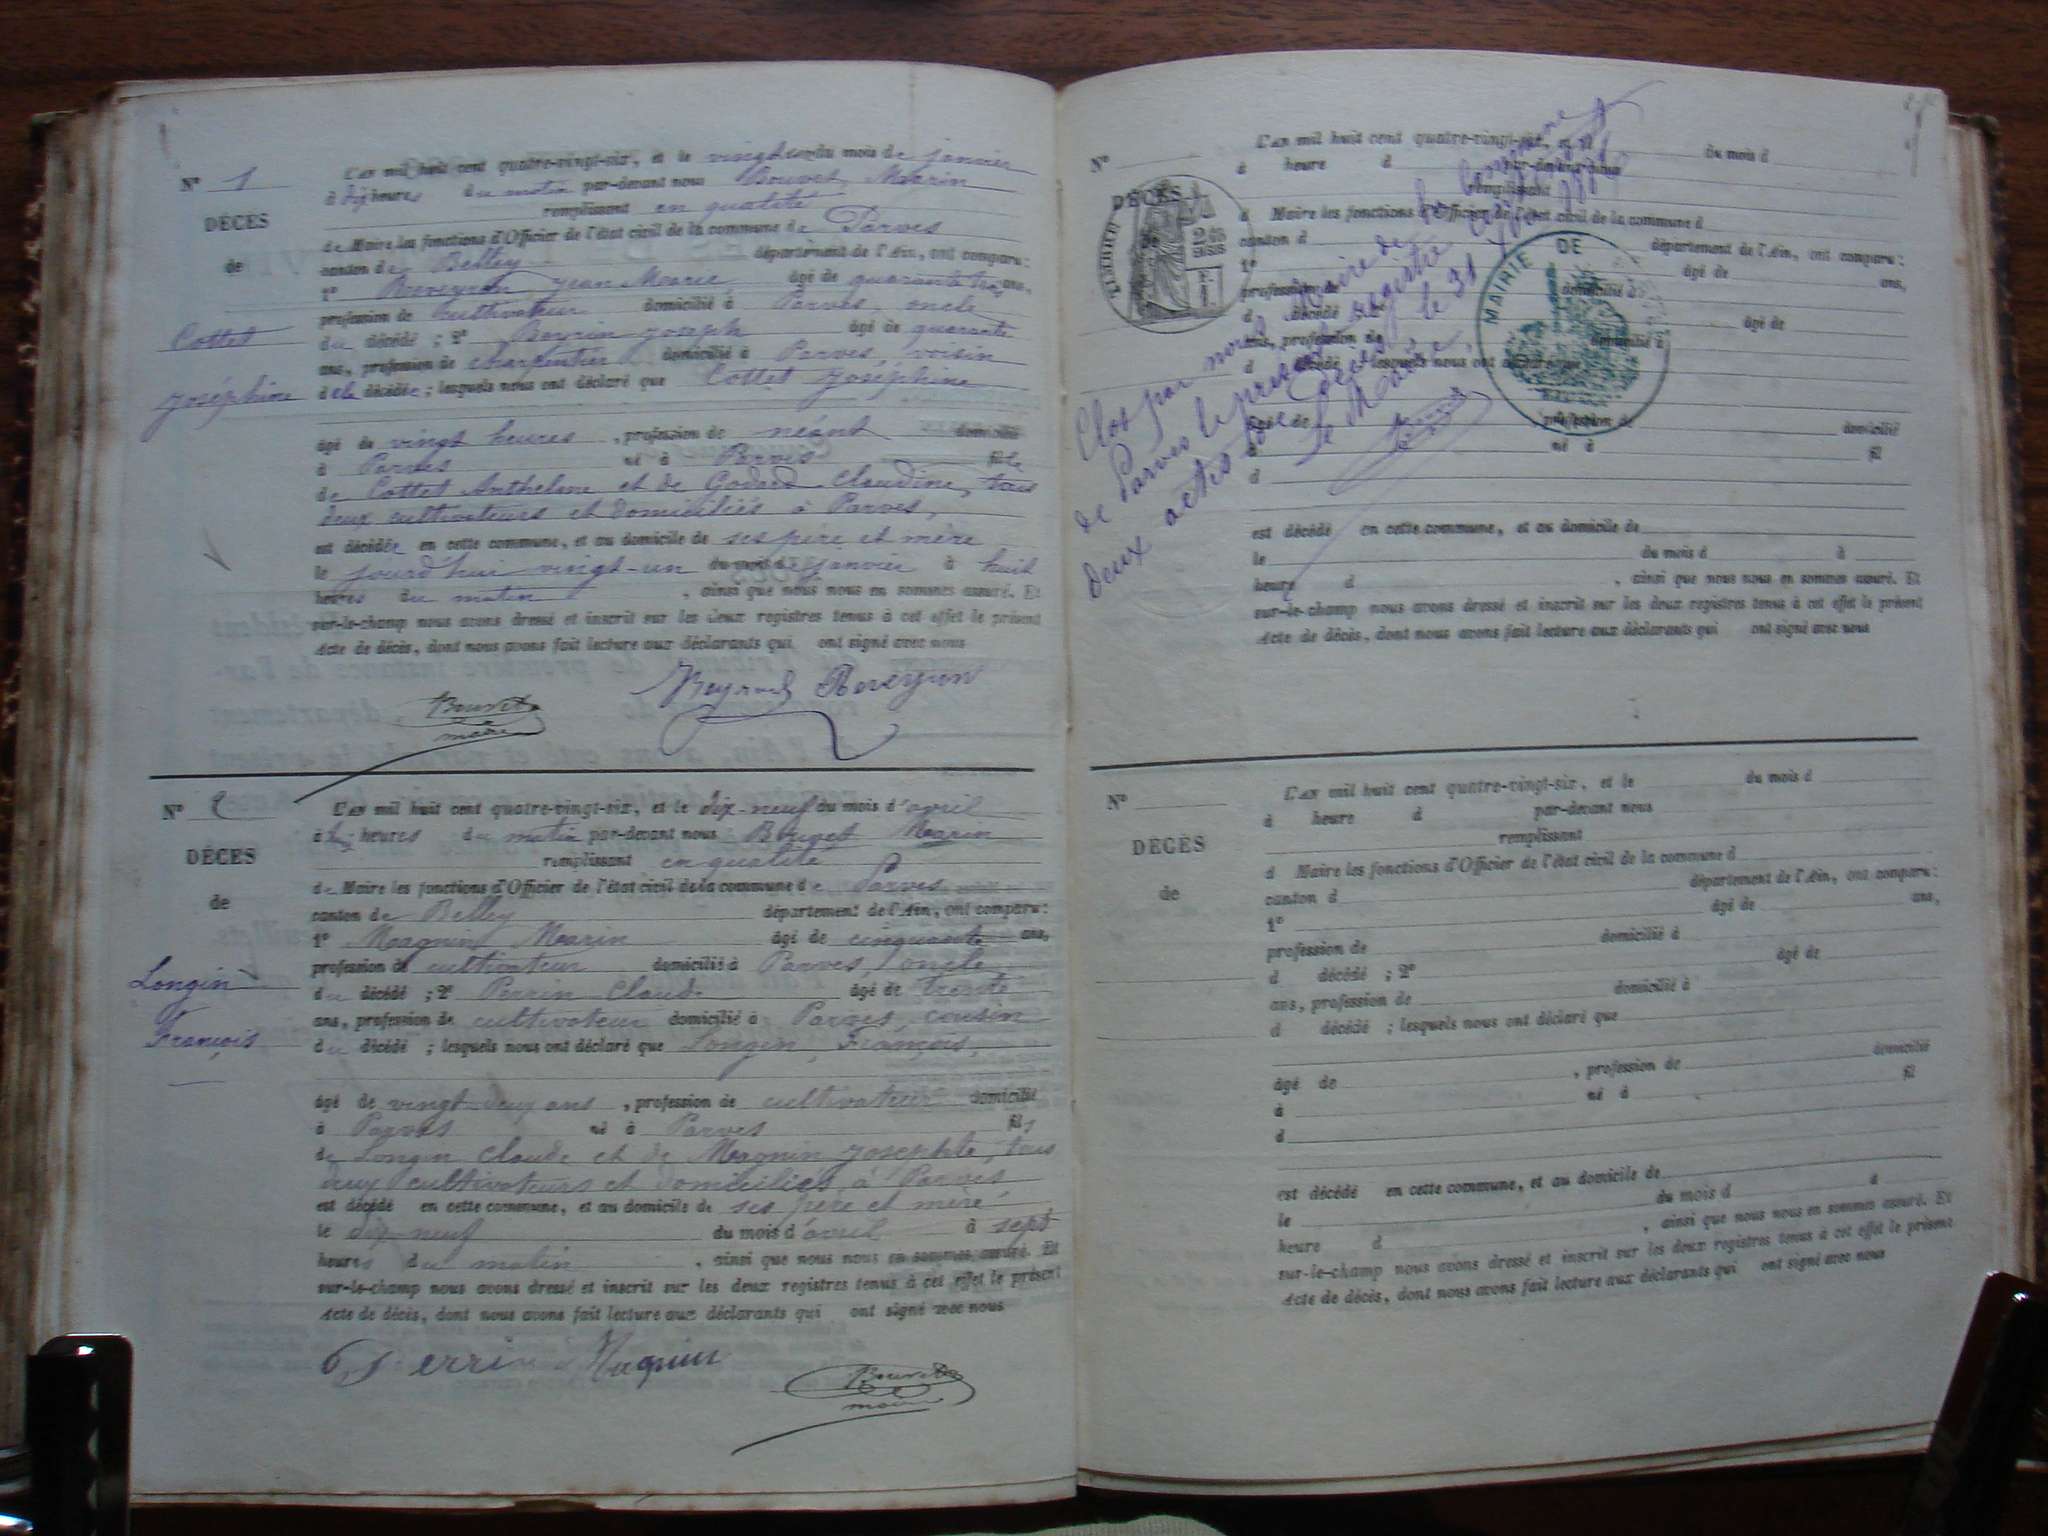 N° 1
DÉCÈS
de
Cottet
Joséphine
L'an mil huit cent quatre-vingt-six, et le vingt-un du mois de janvier
à dix heures du matin par-devant nous Bouvet Marin
remplissant en qualité
de Maire les fonctions d'Officier de l'état civil de la commune de Parves
canton de Belley département de l'Ain, ont comparu:
1° Reveyron Jean Marie âgé de quarante trois ans,
profession de cultivateur domicilié à Parves, oncle
du décédé; 2° Joseph âgé de quarante
ans, profession de charpentier domicilié à Parves, voisin
de la décédée; lesquels nous ont déclaré que Cottet Joséphine
âgé de vingt heures, profession de néant domicilié
à Parves né à Parves fille
de Cottet Anthelme et de Godard Claudine, tous
deux cultivateurs et domiciliés à Parves,
est décédée en cette commune, et au domicile de ses père et mère
le jourd'hui vingt-un du mois de janvier à huit
heures du matin, ainsi que nous nous en sommes assuré. Et
sur-le-champ nous avons dressé et inscrit sur les deux registres tenus à cet effet le présent
Acte de décès, dont nous avons fait lecture aux déclarants qui ont signé avec nous
Reveyron
Bouvet
maire
N° 2
DÉCÈS
de
Longin
François
L'an mil huit cent quatre-vingt-six, et le dix-neuf du mois d'avril
à heures du matin par-devant nous Bouvet Marin
remplissant en qualité
de Maire les fonctions d'Officier de l'état civil de la commune de Parves
canton de Belley département de l'Ain, ont comparu:
1° Magnin Marin âgé de cinquante ans,
profession de cultivateur domicilié à Parves, oncle
du décédé; 2° Perrin Claude âgé de trente
ans, profession de cultivateur domicilié à Parves cousin
du décédé; lesquels nous ont déclaré que Longin, François,
âgé de vingt-deux ans, profession de cultivateur domicilié
à Parves né à Parves fils
de Longin Claude et de Magnin Josephte, tous
deux cultivateurs et domiciliés à Parves
est décédé en cette commune, et au domicile de ses père et mère
le dix-neuf du mois d'avril à sept
heures du matin, ainsi que nous nous en sommes assuré. Et
sur-le-champ nous avons dressé et inscrit sur les deux registres tenus à cet effet le présent
Acte de décès, dont nous avons fait lecture aux déclarants qui ont signé avec nous
Perrin Magnin
Bouvet
maire
N°
DÉCÈS
de
L'an mil huit cent quatre-vingt-six, et le du mois d
à heure d par-devant nous
remplissant
d Maire les fonctions d'Officier de l'état civil de la commune d
canton d département de l'Ain, ont comparu:
1° âgé de ans,
profession de domicilié à
d décédé; 2° âgé de
ans, profession de domicilié à
d décédé; lesquels nous ont déclaré que
âgé de , profession de domicilié
à né à fil
d
est décédé en cette commune, et au domicile de
le du mois d à
heure d , ainsi que nous nous en sommes assuré. Et
sur-le-champ nous avons dressé et inscrit sur les deux registres tenus à cet effet le présent
Acte de décès, dont nous avons fait lecture aux déclarants qui ont signé avec nous
Clos par nous Maire de la commune
de Parves le présent registre
deux actes de décès, le 31
Le Maire,
MAIRIE DE
N°
DÉCÈS
de
L'an mil huit cent quatre-vingt-six, et le du mois d
à heure d par-devant nous
remplissant
d Maire les fonctions d'Officier de l'état civil de la commune d
canton d département de l'Ain, ont comparu:
1° âgé de ans,
profession de domicilié à
d décédé; 2° âgé de
ans, profession de domicilié à
d décédé; lesquels nous ont déclaré que
âgé de , profession de domicilié
à né à fil
d
est décédé en cette commune, et au domicile de
le du mois d à
heure d , ainsi que nous nous en sommes assuré. Et
sur-le-champ nous avons dressé et inscrit sur les deux registres tenus à cet effet le présent
Acte de décès, dont nous avons fait lecture aux déclarants qui ont signé avec nous